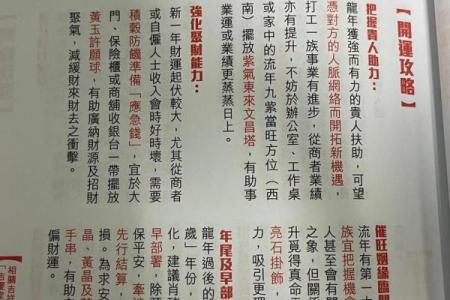 【開運攻略】
把握貴人助力：
龍年獲強而有力的貴人扶助，可望
憑對方的人脈網絡而開拓新機遇，
打工一族事業有進步，從商者業績
亦有提升，不妨於辦公室、工作桌
或家中的流年九紫當旺方位（西
南）擺放紫氣東來文昌塔，有助事
業運或業績更蒸蒸日上。
強化聚財能力：
新一年財運起伏較大，尤其從商者
或自僱人士收入會時好時壞，需要
積穀防饑準備「應急錢」，宜於大
門、保險櫃或商舖收銀台一帶擺放
黃玉許願球，有助廣納財源及招財
聚氣，減緩財來財去之衝擊。
催旺姻緣臨門
流年有第一
族宜把握機會
人甚至會有閃
之象，但關
升覓得真命天
亮石掛飾，
力，吸引更理
年尾及早部
龍年過後的
歲」年份，
化，建議肖豬
早部署，除預
保平安，牽
先行結算，
損。為求安
晶、黃晶及
手串，有助
偏財運。
相關吉祥